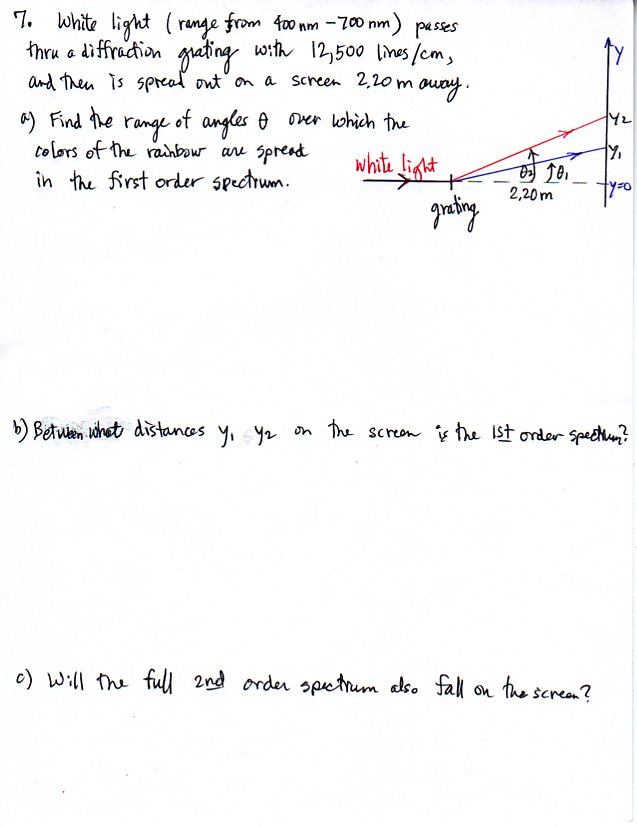 7. White light (range from 400 nm – 700 nm) passes
thru a diffraction grating with 12,500 lines/cm,
and then is spread out on a screen 2.20 m away.
a) Find the range of angles θ over which the
colors of the rainbow are spread
in the first order spectrum.
y
y2
y1
white light
θ2 θ1
y=0
2.20 m
grating
b) Between what distances y1 y2 on the screen is the 1st order spectrum?
c) Will the full 2nd order spectrum also fall on the screen?